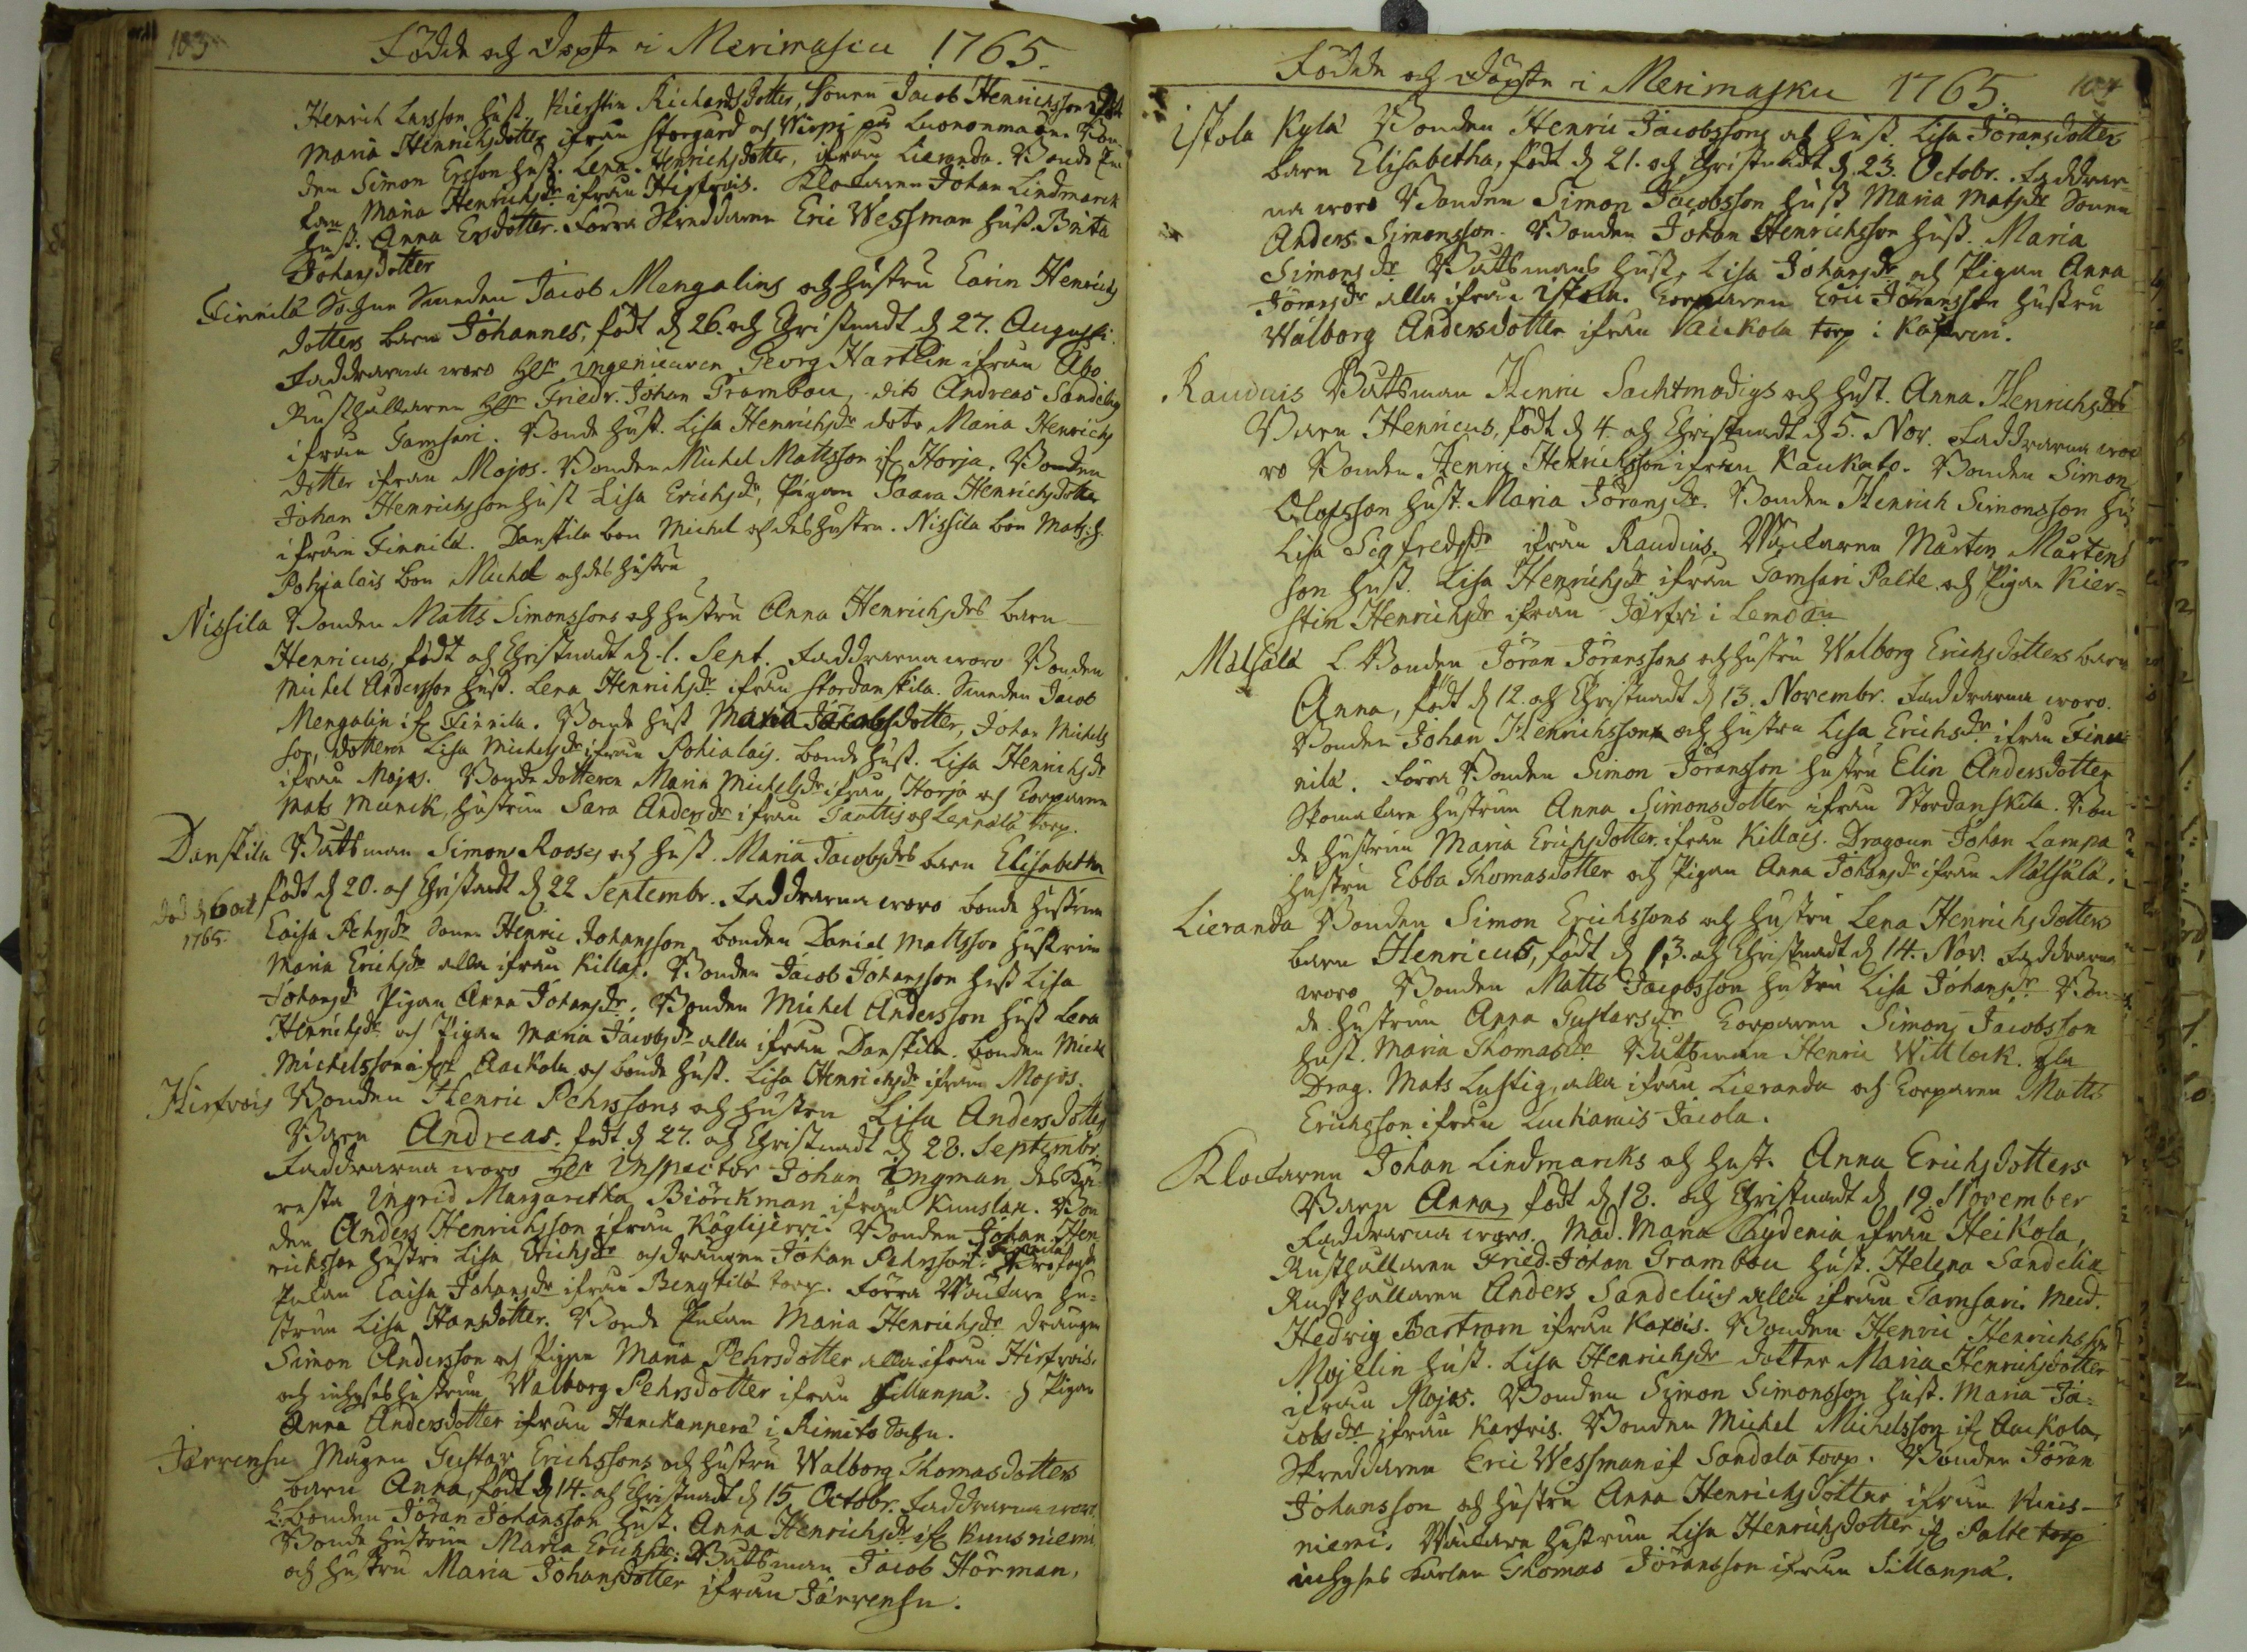 103
Födde och Döpte i Merimasku 1765.
Henrich Larsson hust. Kierstin Richardsdotter, Sonen Jacob Henrichsson
Maria Henrichsdotter ifrån Storgård och på Luononmaan. Bon-
den Simon Ersson hust. Lena Henrichsdotter, ifrån Lieranda. Bonde En
kan Maria Henrichsdr ifrån Hirfvois. Klockaren Johan Lindmarck
hust. Anna Ersdotter. Förra Skreddaren Eric Wessman hust. Brita
Johansdotter
Finnilä Sochne Smeden Jacob Mengalins och hustru Carin Henrichs
dotters barn Johannes, född d. 26. och Christnadt d. 27. Augusti.
Faddrarna woro Hr ingenieuren Georg Hartlin ifrån Åbo
Rusthållaren Hr Friedr. Johan Grambou, dito Andreas Sandelius
ifrån Samsari. Bonde hust. Lisa Henrichsdr dotr Maria Henrichs
dotter ifrån Mojos. Bonden Michel Mattsson if. Horja. Bonden
Johan Henrichsson hust Lisa Erichsdr, Pigan Saara Henrichsdotter
ifrån Finnilä. Danskila bon Michel och des hustru. Nissila bon Mats. h.
Pohialois bon Michel och des hustru
Nissila Bonden Matts Simonssons och hustru Anna Henrichsdrs barn
Henricus, född och Christnadt d. 1. Sept. Faddrarna woro Bonden
Michel Andersson hust. Lena Henrichsdr ifrån Stordanskila. Smeden Jacob
Mengalin if. Finnila. Bonde hust Maria Jacobsdotter, Johan Michels
son, dotteren Lisa Michelsdr ifrån Pohialais. bonde hust. Lisa Henrichsdr
ifrån Mojos. Bonde dotteren Maria Michelsdr ifrån Horja och Torparen
Mats Munck, hustrun Sara Andersdr ifrån Tanttis och Lennälä torp.
Danskila Båttsman Simon Rooses och hust. Maria Jacobsdrs barn Elisabetha
död d. 6 oct 1765.
född d. 20. och Christnadt d. 22 Septembr. Faddrarna woro bonde hustrun
Caisa Pehrsdr Sonen Henric Johansson, bonden Daniel Mattsson hustrun
Maria Erichsdr alla ifrån Killais. Bonden Jacob Johansson hust Lisa
Johansdr Pigan Anna Johansdr. Bonden Michel Andersson hust Lena
Henrichsdr och Pigan Maria Jacobsdr alla ifrån Danskila. bonden Michel
Michelsson ifrn Aackola och bonde hust. Lisa Henrichsdr ifrån Mojos.
Hirfvois Bonden Henric Pehrssons och hustru Lisa Andersdotters
Barn Andreas. född d. 27. och Christnadt d. 28. Septembr.
Faddrarna woro Hr Inspector Johan Ingman des Kä-
resta Ingrid Margaretha Biörckman ifrån Kunslax. Bon
den Anders Henrichsson ifrån Köglijerri. Bonden Johan Hen
ricksson hustru Lisa Erichsdr och drängen Johan Pehrsson.
Enkan Caisa Johansdr ifrån Bengtilä torp. Förra Wäckare hu-
strun Lisa Hansdotter. Bonde Enkan Maria Henrichsdr drängen
Simon Andersson och Pigan Maria Pehrsdotter alla ifrån Hirfvois.
och inhyses hustrun Walborg Pehrsdotter ifrån Sillanpä. och Pigan
Anna Andersdotter ifrån Hanckanperä i Rimito Sochn.
Järvensu Mågen Gustav Erichssons och hustru Walborg Thomasdotters
barn Anna, född d. 14. och Christnadt d. 15 Octobr. Faddrarna woro
L. bonden Jöran Johansson hust. Anna Henrichsdr if. Kuusniemi
Bonde hustrun Maria Erichsdr. Båttsman Jacob Hörman,
och hustru Maria Johansdotter ifrån Järvensu.
104
Födde och Döpte i Merimasku 1765.
Iskola Kylä Bonden Henric Jacobssons och hust. Lisa Joransdotters
barn Elisabetha, född d. 21. och Christnadt d. 23. Octobr. Faddrar-
na woro Bonden Simon Jacobsson hust Maria Matsdr Sonen
Anders Simonsson. Bonden Johan Henrichsson hust. Maria
Simonsdr Båttsmans hust. Lisa Johansdr och Pigan Anna
Joransdr alla ifrån Iskola. Torparen Eric Joransson hustru
Walborg Andersdotter ifrån Packola torp i Kaxven.
Rauduis Båttsman Henric Sachtmodigs och hust. Anna Henrichsdrs
Barn Henricus, född d. 4. och Christnadt d. 5. Nov. Faddrarna wo-
ro Bonden Henric Henrichsson ifrån Kaukato. Bonden Simon
Olofsson hust. Maria Joransdr. Bonden Henrich Simonsson hu
Lisa Segfredsdr ifrån Rauduis. Wäckaren Mårten Mårtens
son hust. Lisa Henrichsdr ifrån Samsari Palte, och Pigan Kier-
stin Henrichsdr ifrån Järfvi i Lemo
Mälsälä L. Bonden Jöran Jöranssons och hustru Walborg Erichsdotters barn
Anna, född d. 12. och Christnadt d. 13. Novembr. Faddrarna woro.
Bonden Johan Henrichsson och hustru Lisa Erichsdr ifrån Fin-
nilä. Förra Bonden Simon Joransson hustru Elin Andersdotter
Skomakare hustrun Anna Simonsdotter ifrån Stordanskila. Bon
de hustrun Maria Erichsdotter ifrån Killais. Dragoun Johan Lampa
hustru Ebba Thomasdotter och Pigan Anna Johansdr ifrån Mälsälä.
Lieranda Bonden Simon Erichssons och hustru Lena Henrichsdotters
barn Henricus, född d. 13. och Christnadt d. 14. Nov. Faddrarna
woro Bonden Matts Jacobsson hustru Lisa Johansdr Bon-
de hustrun Anna Gustavsdr Torparen Simon Jacobsson
hust. Maria Thomasdr Båttsman Henric Wittlock.
Drag. Mats Lustig, alla ifrån Lieranda och Torparen Matts
Erichsson ifrån Luckarais Jäcola.
Klockaren Johan Lindmarcks och hust. Anna Erichsdotters
Barn Anna, född d. 18. och Christnadt d. 19 November
Faddrarna woro. Mad. Maria Chydenia ifrån Heickola,
Rusthållaren Fried. Johan Grambou hust. Helena Sandelia
Rusthållaren Anders Sandelius alla ifrån Samsari. Mad.
Hedvig Bartram ifrån Kaxois. Bonden Henric Henrichsson
Mojelin hust. Lisa Henrichsdr dotter Maria Henrichsdotter
ifrån Mojos. Bonden Simon Simonsson hust. Maria Ja-
cobsdr ifrån Karfvis. Bonden Michel Michelsson if. Aackola,
Skreddaren Eric Wessman af Sandala torp. Bonden Jöran
Johansson och hustru Anna Henrichsdotter ifrån Kuus-
niemi. Wäckare hustrun Lisa Henrichsdotter if. Palte torp
inhyses karlen Thomas Jöransson ifrån Sillanpä.